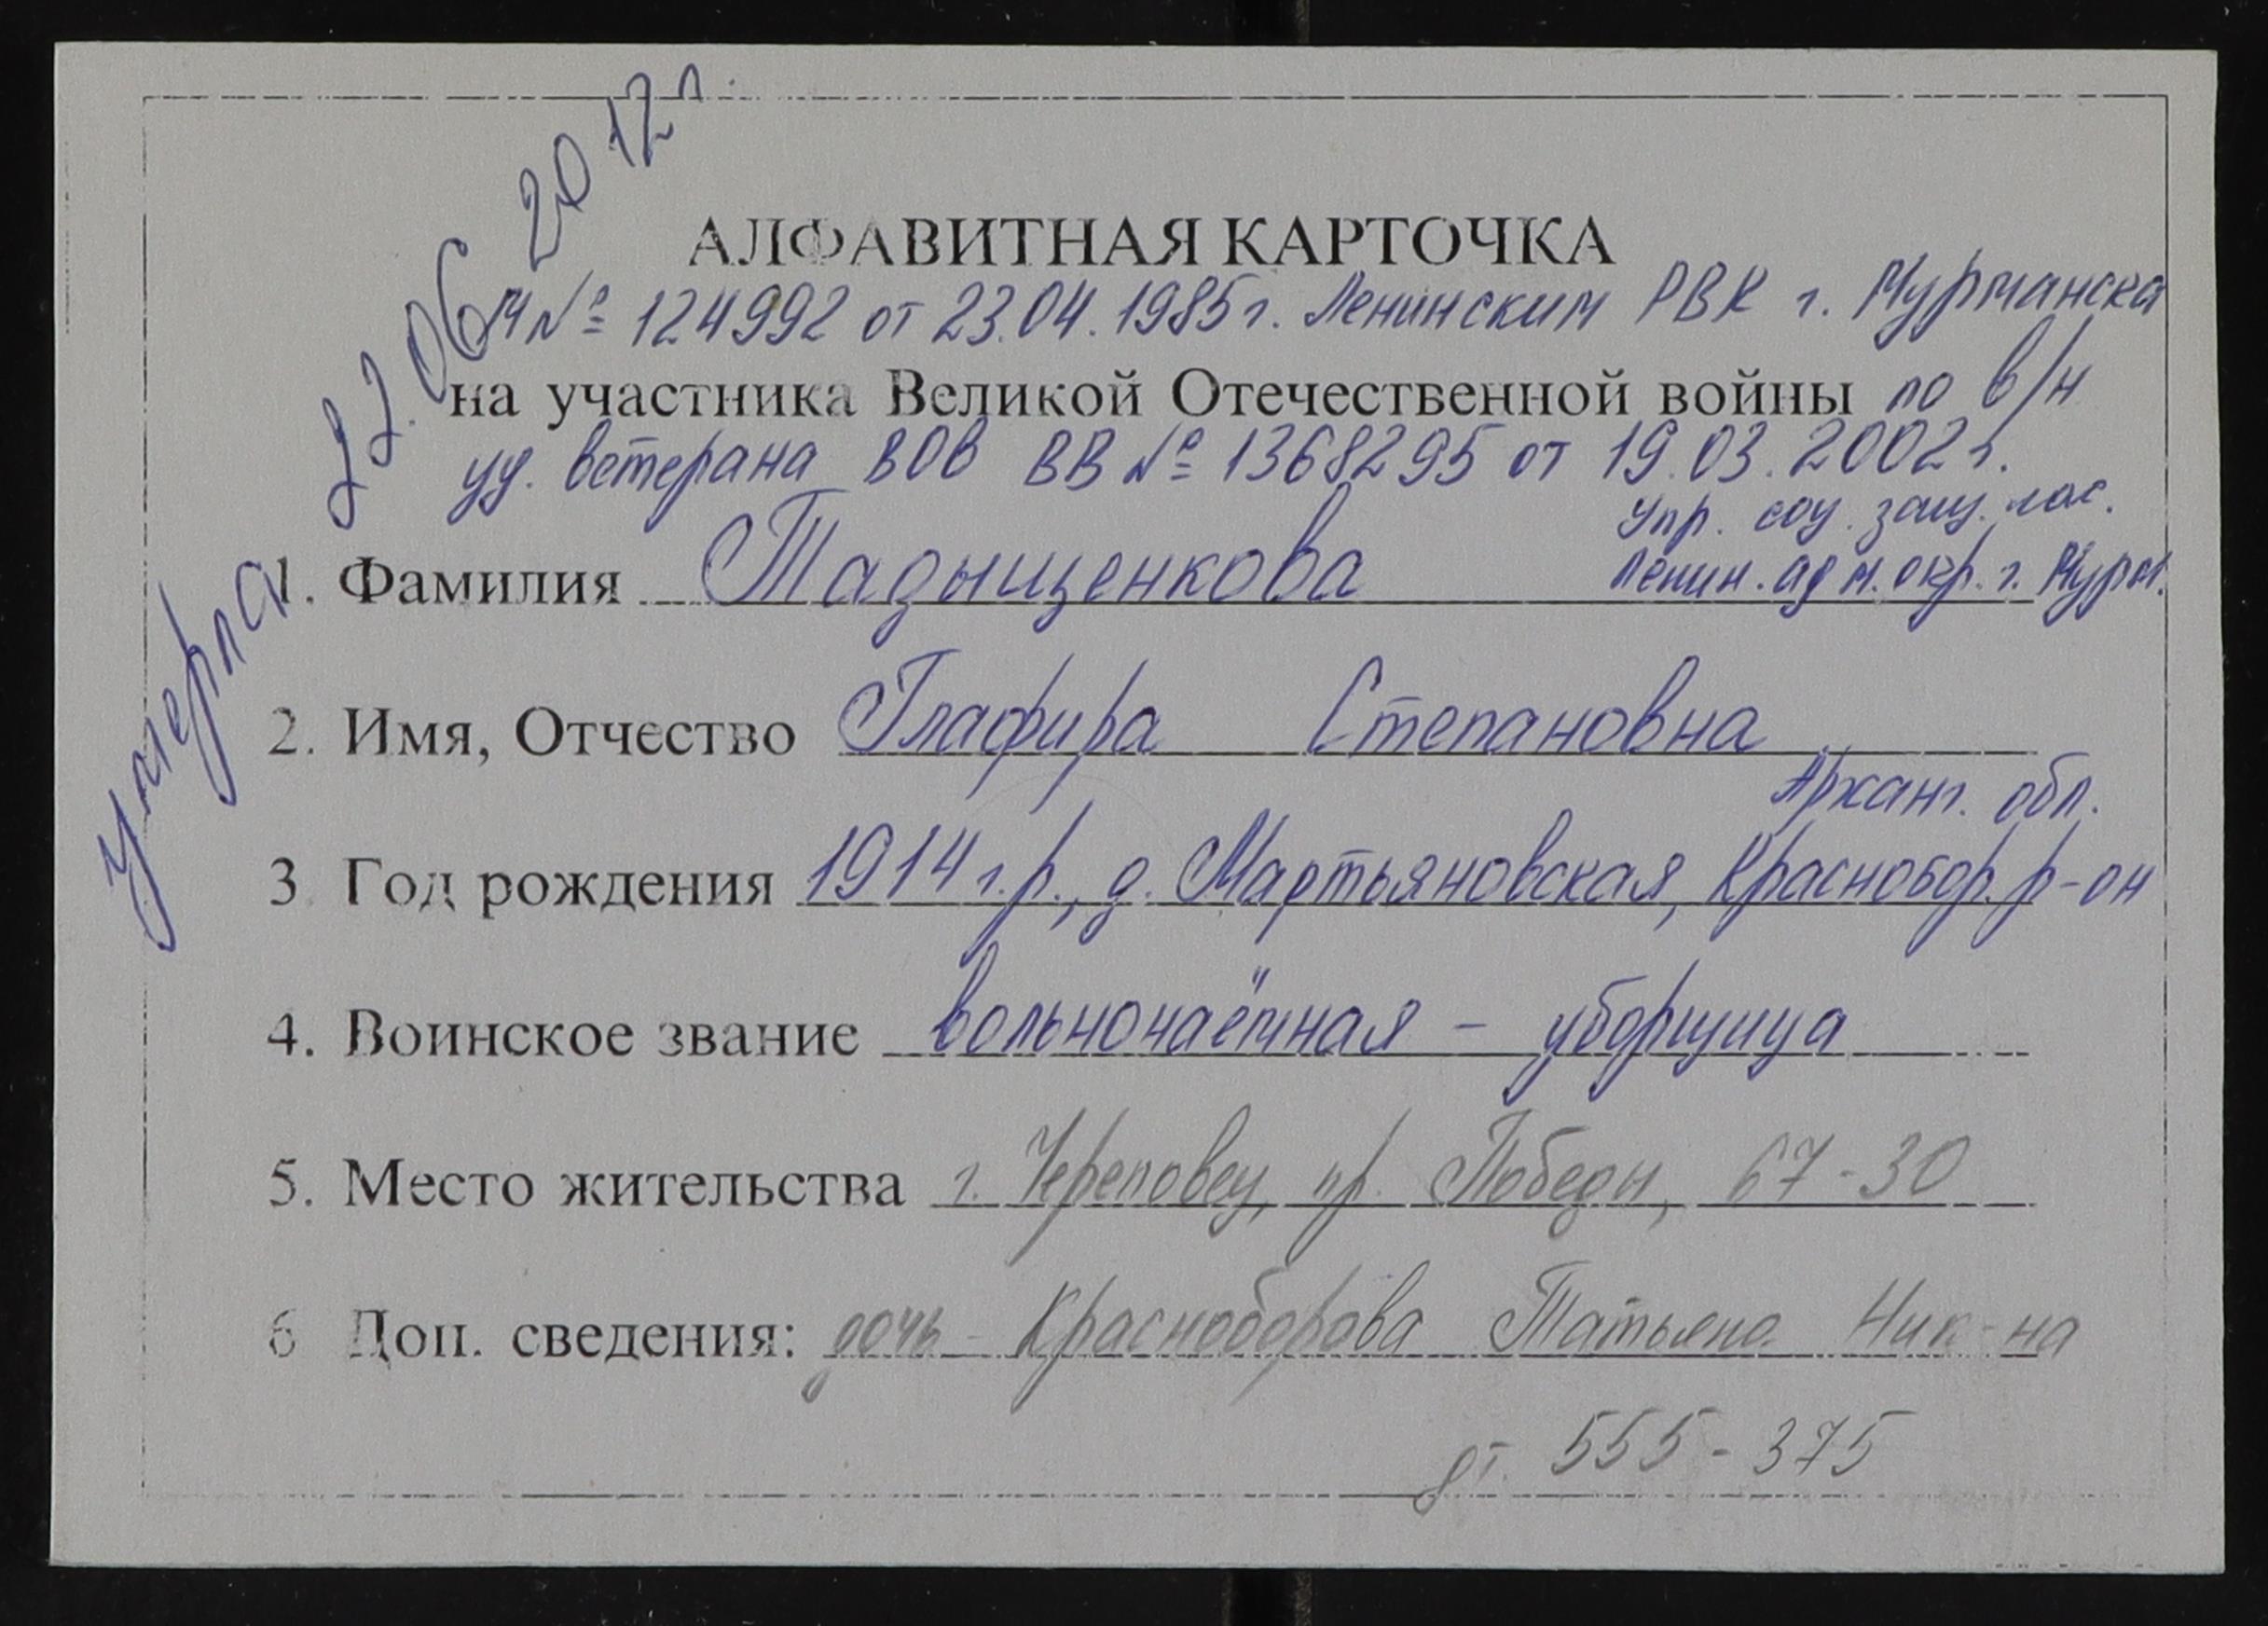 умерла 22.06.2012г.
АЛФАВИТНАЯ КАРТОЧКА
М № 124992 от 23.04.1985г. Ленинским РВК г. Мурманска
на участника Великой Отечественной войны по в/н
уд. ветерана ВОВ ВВ № 1368295 от 19.03.2002г.
Упр. соц. защ. нас.
Ленин. адм. окр. г. Мурм.
1. Фамилия Тадыщенкова
2. Имя, Отчество Глафира Степановна
Арханг. обл.
3. Год рождения 1914 г.р., д. Мартьяновская, Краснобор. р-он
4. Воинское звание вольнонаёмная - уборщица
5. Место жительства г. Череповец, пр. Победы, 67-30
6 Доп. сведения: дочь - Красноборова Татьяна Ник-на
дт. 555-375